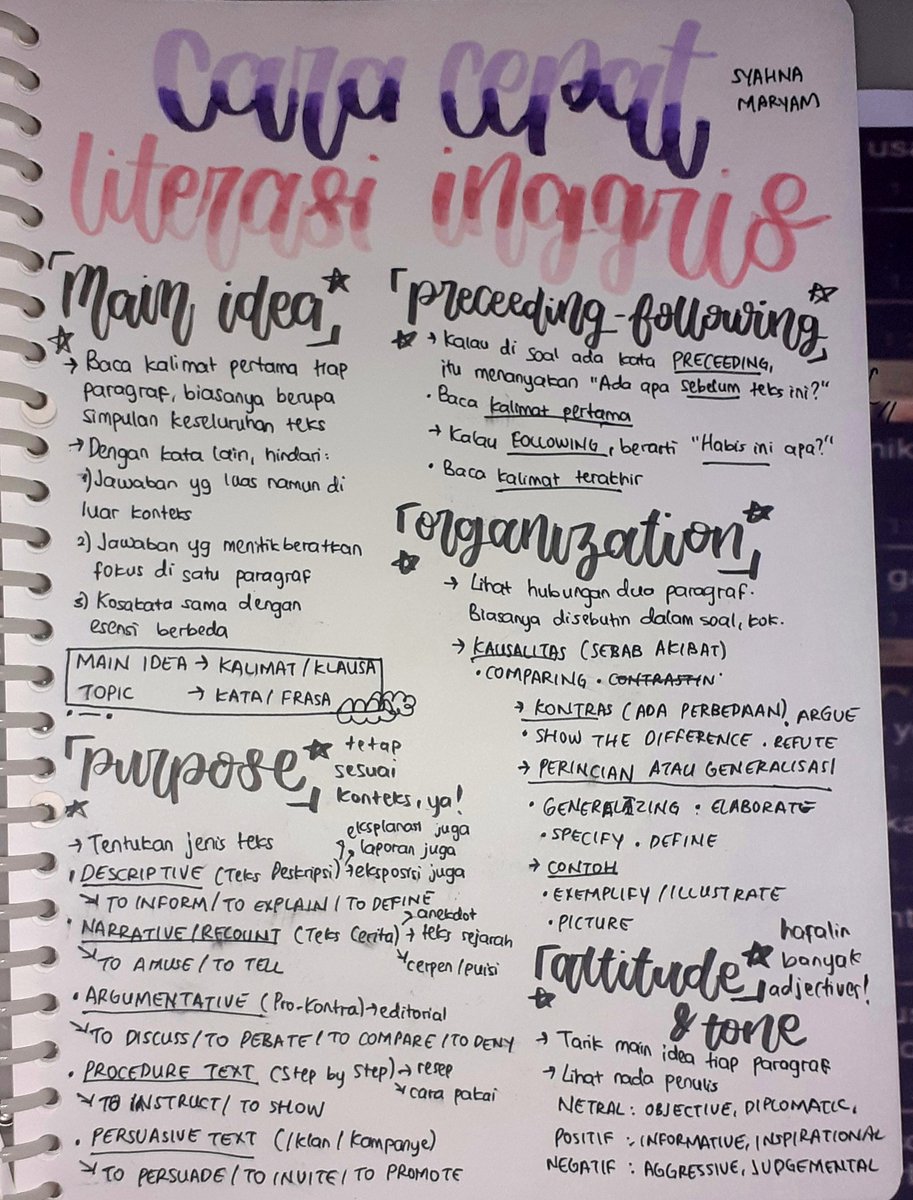 cara cepat
SYAHNA
MARYAM
literasi inggris
「main idea」
→ Baca kalimat pertama tiap
paragraf, biasanya berupa
simpulan keseluruhan teks
→ Dengan kata lain, hindari:
1) Jawaban yg luas namun di
luar konteks
2) Jawaban yg menitikberatkan
fokus di satu paragraf
3) Kosakata sama dengan
esensi berbeda
MAIN IDEA → KALIMAT/KLAUSA
TOPIC → KATA/FRASA
「purpose」
tetap
sesuai
konteks, ya!
→ Tentukan jenis teks
eksplanasi juga
laporan juga
• DESCRIPTIVE (Teks Deskripsi) → eksposisi juga
↘ TO INFORM / TO EXPLAIN / TO DEFINE
• NARRATIVE/RECOUNT (Teks Cerita) → teks sejarah
anekdot
cerpen/puisi
↘ TO AMUSE / TO TELL
• ARGUMENTATIVE (Pro-Kontra) → editorial
↘ TO DISCUSS / TO DEBATE / TO COMPARE / TO DENY
• PROCEDURE TEXT (Step by Step) → resep
↘ cara pakai
↘ TO INSTRUCT / TO SHOW
• PERSUASIVE TEXT (Iklan / Kampanye)
↘ TO PERSUADE / TO INVITE / TO PROMOTE
「preceeding-following」
→ Kalau di soal ada kata PRECEEDING,
itu menanyakan "Ada apa sebelum teks ini?"
• Baca kalimat pertama
→ Kalau FOLLOWING, berarti "Habis ini apa?"
• Baca kalimat terakhir
「organization」
→ Lihat hubungan dua paragraf.
Biasanya disebutin dalam soal, kok.
→ KAUSALITAS (SEBAB AKIBAT)
• COMPARING • CONTRASTIN
→ KONTRAS (ADA PERBEDAAN) . ARGUE
• SHOW THE DIFFERENCE . REFUTE
→ PERINCIAN ATAU GENERALISASI
• GENERALIZING • ELABORATE
• SPECIFY . DEFINE
→ CONTOH
• EXEMPLIFY / ILLUSTRATE
• PICTURE
「attitude」
& tone
hafalin
banyak
adjectives!
→ Tarik main idea tiap paragraf
→ Lihat nada penulis
NETRAL : OBJECTIVE, DIPLOMATIC,
POSITIF : INFORMATIVE, INSPIRATIONAL
NEGATIF : AGGRESSIVE, JUDGEMENTAL